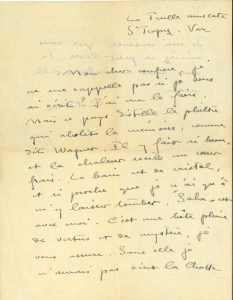 La Treille muscate
St Tropez, Var
Mon cher confrère, je
ne me rappelle pas si je vous
ai écrit ? J'ai dû le faire.
Mais ce pays distille le philtre
qui abolit la mémoire, comme
dit Wagner. Il y fait si beau,
et la chaleur recèle un cœur
frais. Le bain est de cristal,
et si proche que je n'ai qu'à
m'y laisser tomber. Saha est
avec moi. C'est une bête pleine
de vertus et de mystère, je
vous assure. Sans elle je
n'aurais pas écrit la Chatte